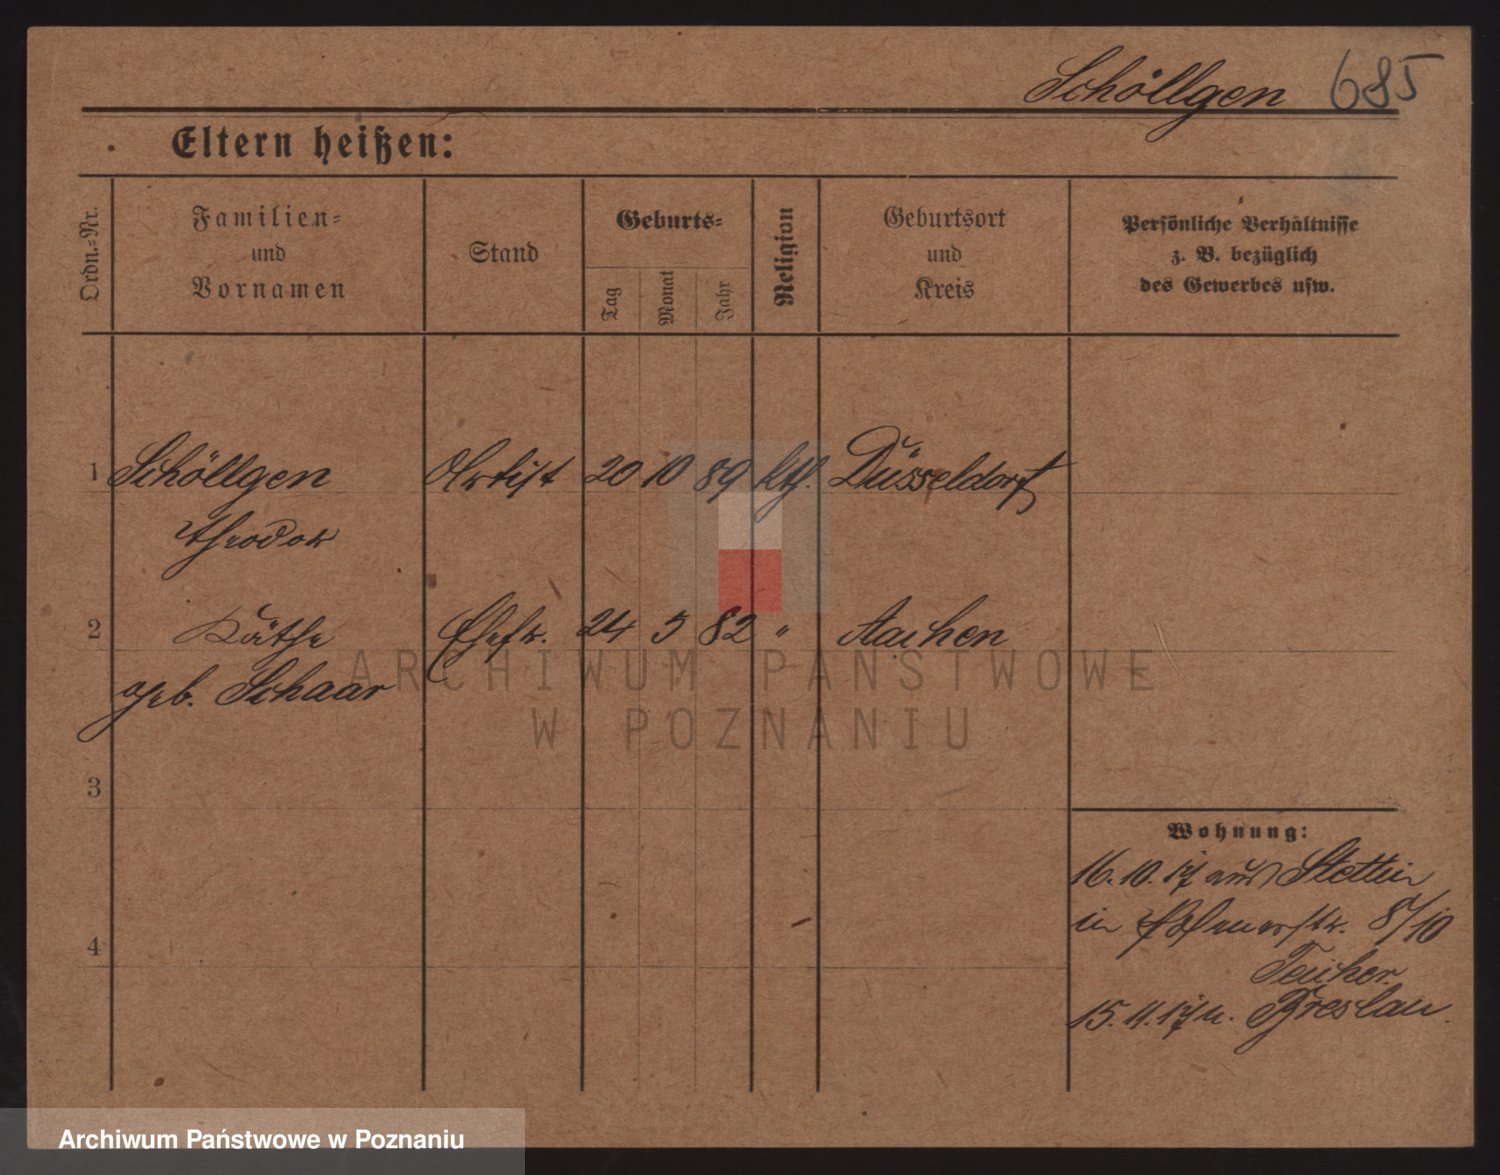 Schöllgen 685
Eltern heißen:
Ordn.-Nr.
Familien-
und
Vornamen
Stand
Geburts-
Tag
Monat
Jahr
Religion
Geburtsort
und
Kreis
Persönliche Verhältnisse
z. B. bezüglich
des Gewerbes usw.
1 Schöllgen Artist 20 10 89 kth. Düsseldorf
Theodor
2 Käthe Ehefr. 24 5 82 " Aachen
geb. Schaar
3
4
Wohnung:
16.10.17 aus Stettin
in 8/10
Teicher.
15.11.17 n. Breslau.
ARCHIWUM PAŃSTWOWE
W POZNANIU
Archiwum Państwowe w Poznaniu